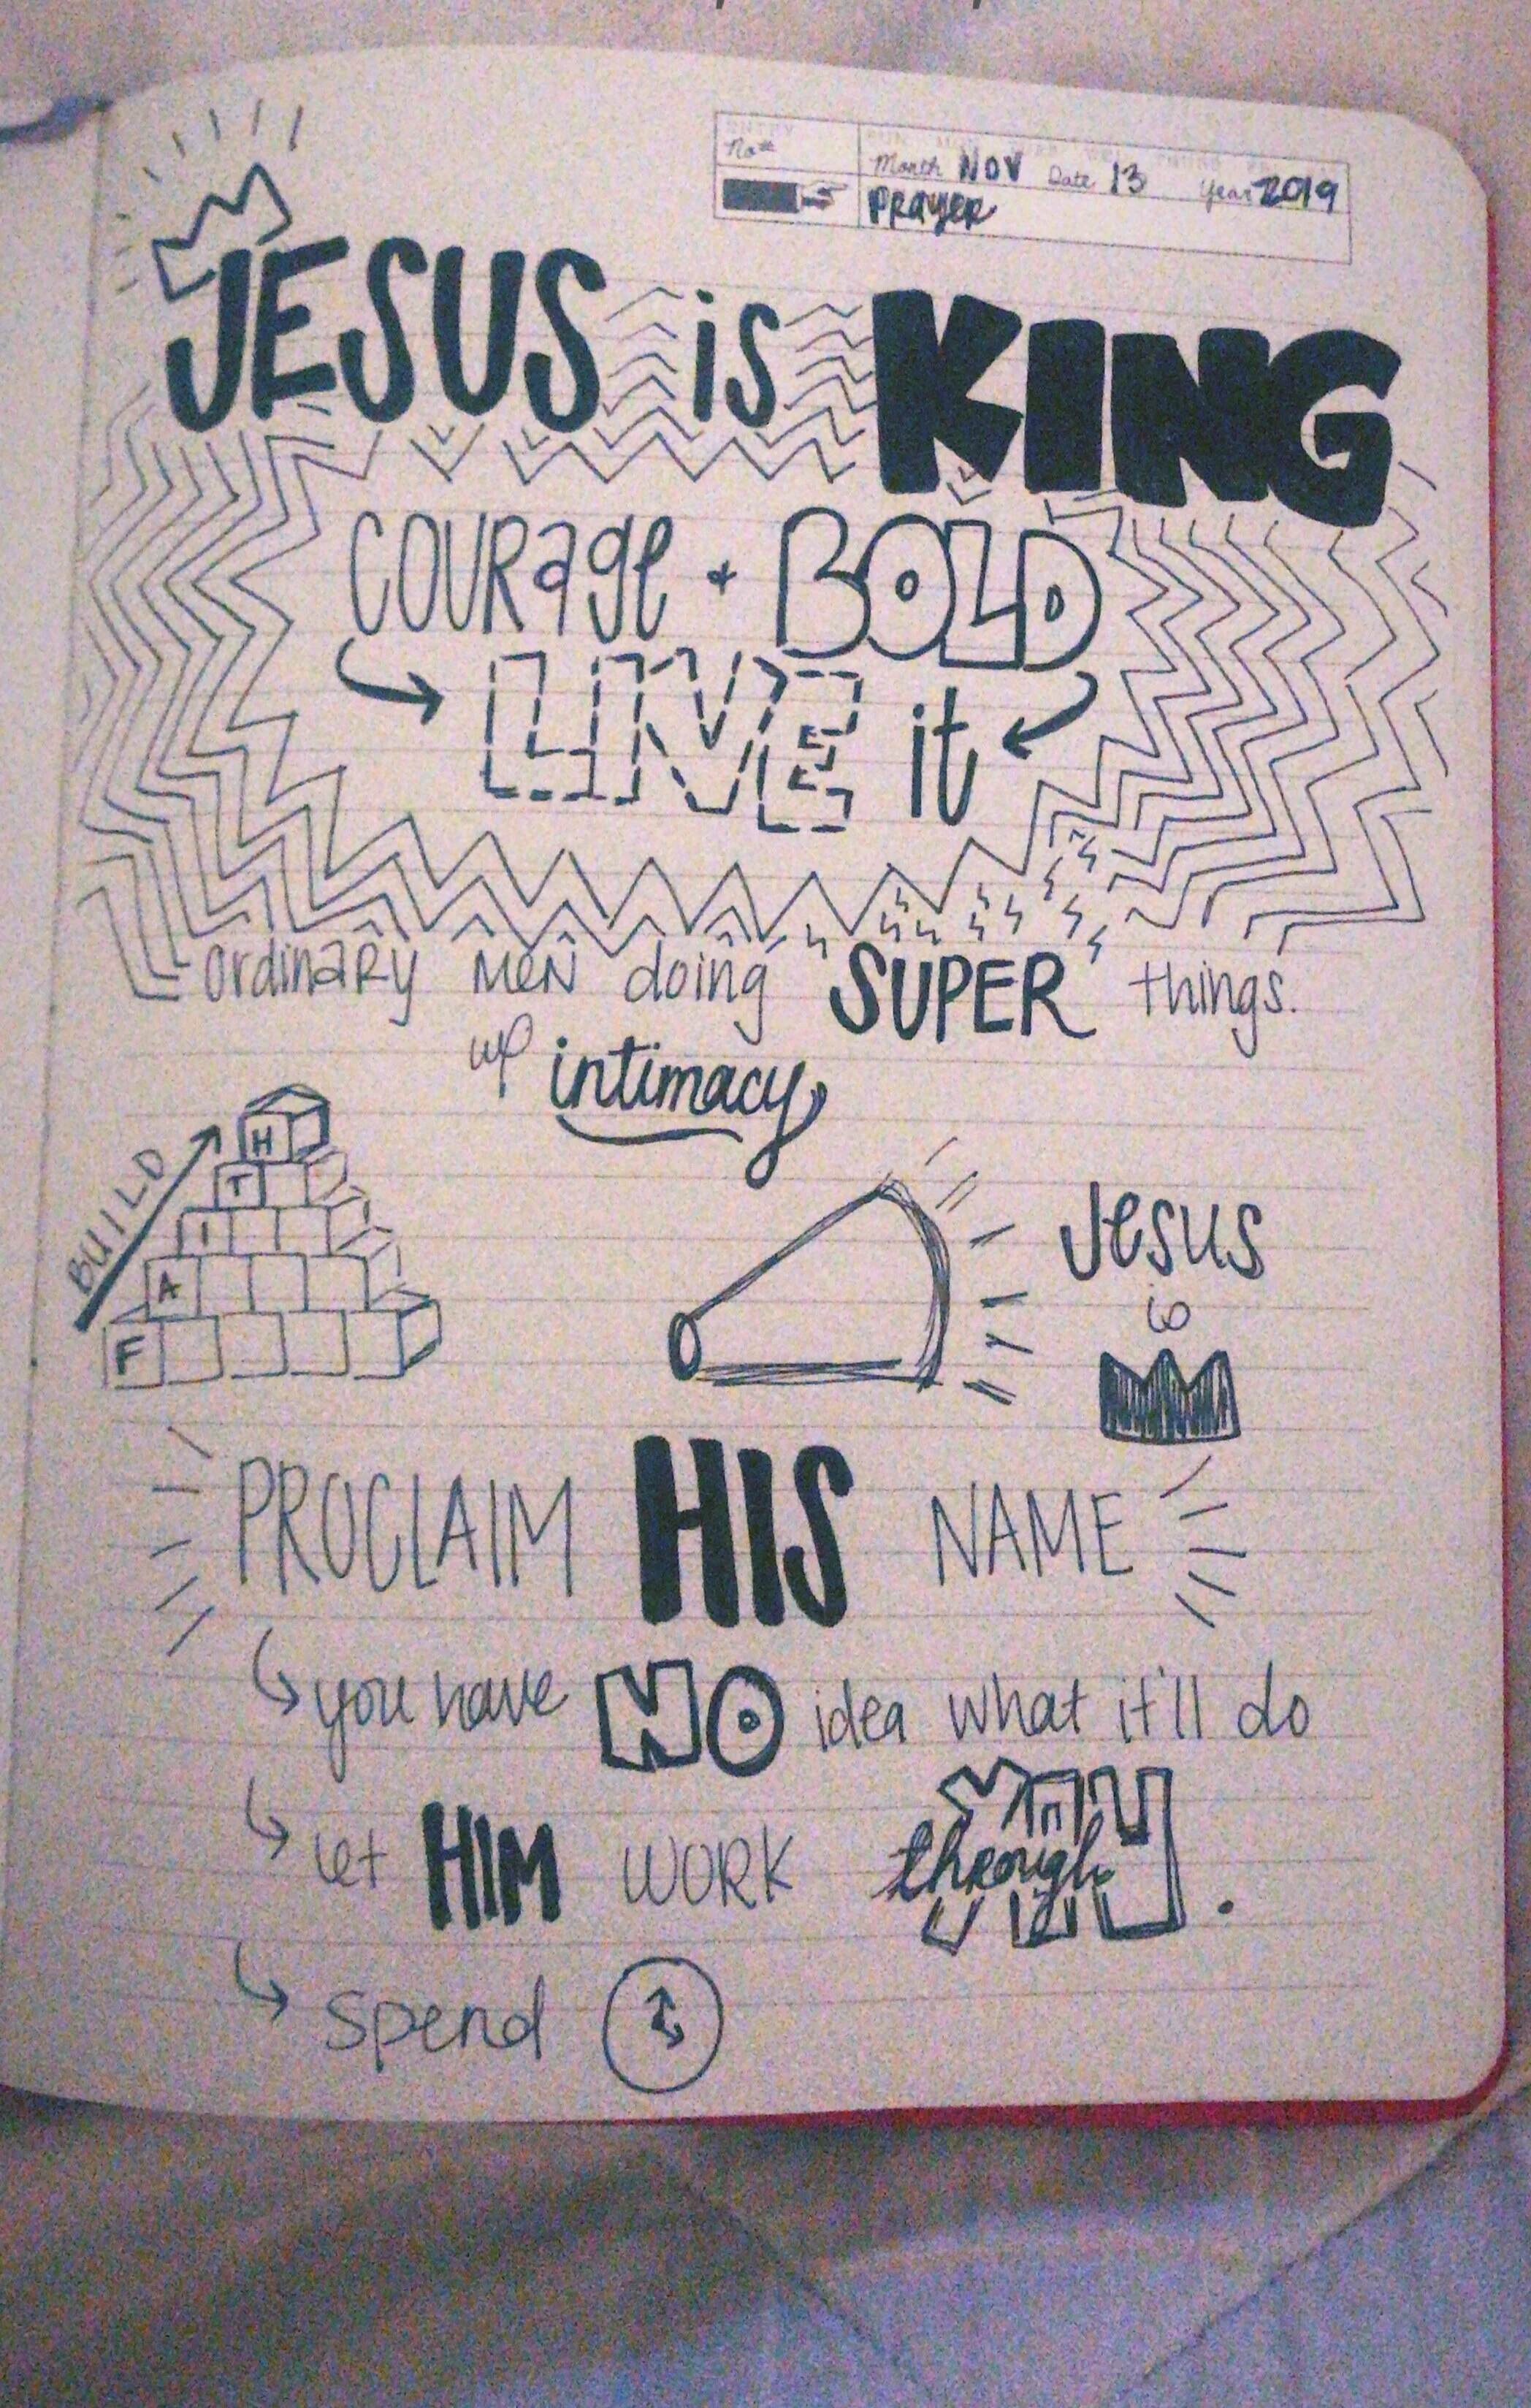 No. Month NOV Date 13 Year 2019
Prayer
JESUS is KING
COURage + BOLD
LIVE it
ordinary men doing SUPER things.
intimacy
BUILD
H
T
I
A
F
Jesus
is
PROCLAIM HIS NAME
you have NO idea what it'll do
let HIM WORK through YOU.
spend